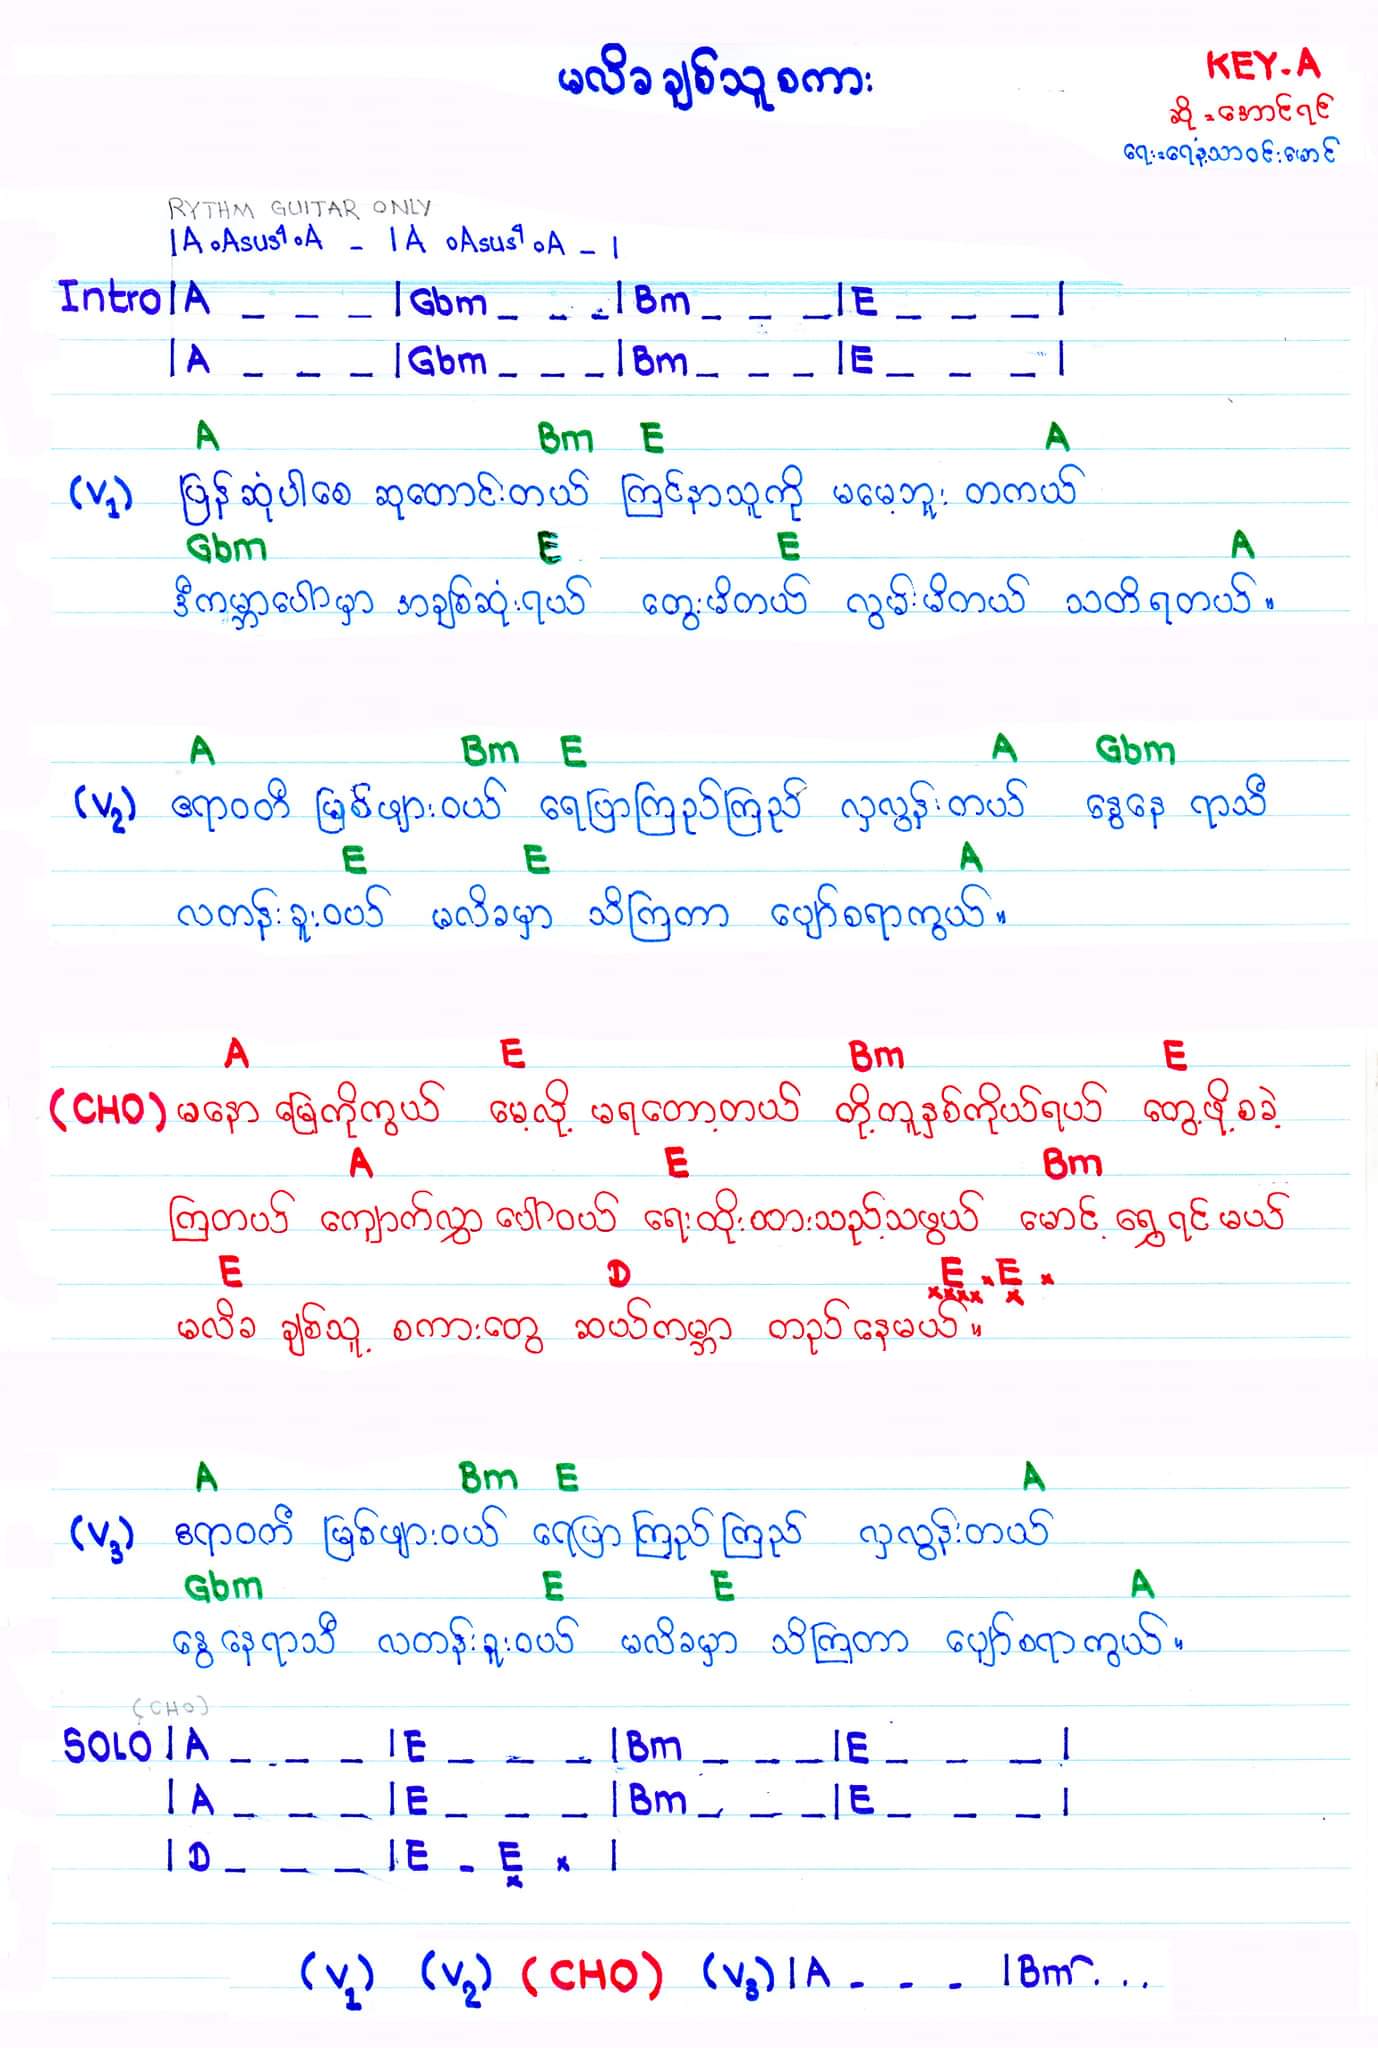 မလိခ ချစ်သူ စကား
KEY-A
ဆို = အောင်ရင်
ရေး = ရေနံ့သာဝင်းမောင်
RYTHM GUITAR ONLY
|A o Asus4 o A - |A o Asus4 o A - |
Intro |A _ _ _ |Gbm _ _ _ |Bm _ _ _ |E _ _ _ |
|A _ _ _ |Gbm _ _ _ |Bm _ _ _ |E _ _ _ |
A Bm E A
(V1) ပြန်ဆုံပါစေ ဆုတောင်းတယ် ကြင်နာသူကို မမေ့ဘူး တကယ်
Gbm E E A
ဒီကမ္ဘာပေါ်မှာ အချစ်ဆုံးရယ် တွေးမိတယ် လွမ်းမိတယ် သတိရတယ်။
A Bm E A Gbm
(V2) ဧရာဝတီ မြစ်ဖျားဝယ် ရေပြာကြည်ကြည် လှလွန်းတယ် နွေနေ ရာသီ
E E A
လတန်းခူးဝယ် မလိခမှာ သိကြတာ ပျော်စရာကွယ်။
A E Bm E
(CHO) မနော မြေကိုကွယ် မေ့လို့ မရတော့တယ် တို့တူနှစ်ကိုယ်ရယ် တွေ့ဖို့စခဲ့
A E Bm
ကြတယ် ကျောက်လွှာ ပေါ်ဝယ် ရေးထိုးထားသည့်သဖွယ် မောင့် ရွှေရင်မယ်
E D E x E x
xxxx x
မလိခ ချစ်သူ့ စကားတွေ ဆယ်ကမ္ဘာ တည်နေမယ်။
A Bm E A
(V3) ဧရာဝတီ မြစ်ဖျားဝယ် ရေပြာကြည်ကြည် လှလွန်းတယ်
Gbm E E A
နွေနေရာသီ လတန်းခူးဝယ် မလိခမှာ သိကြတာ ပျော်စရာကွယ်။
(CHO)
SOLO |A _ _ _ |E _ _ _ |Bm _ _ _ |E _ _ _ |
|A _ _ _ |E _ _ _ |Bm _ _ _ |E _ _ _ |
|D _ _ _ |E - E x |
x
(V1) (V2) (CHO) (V3) |A - - - |Bm...